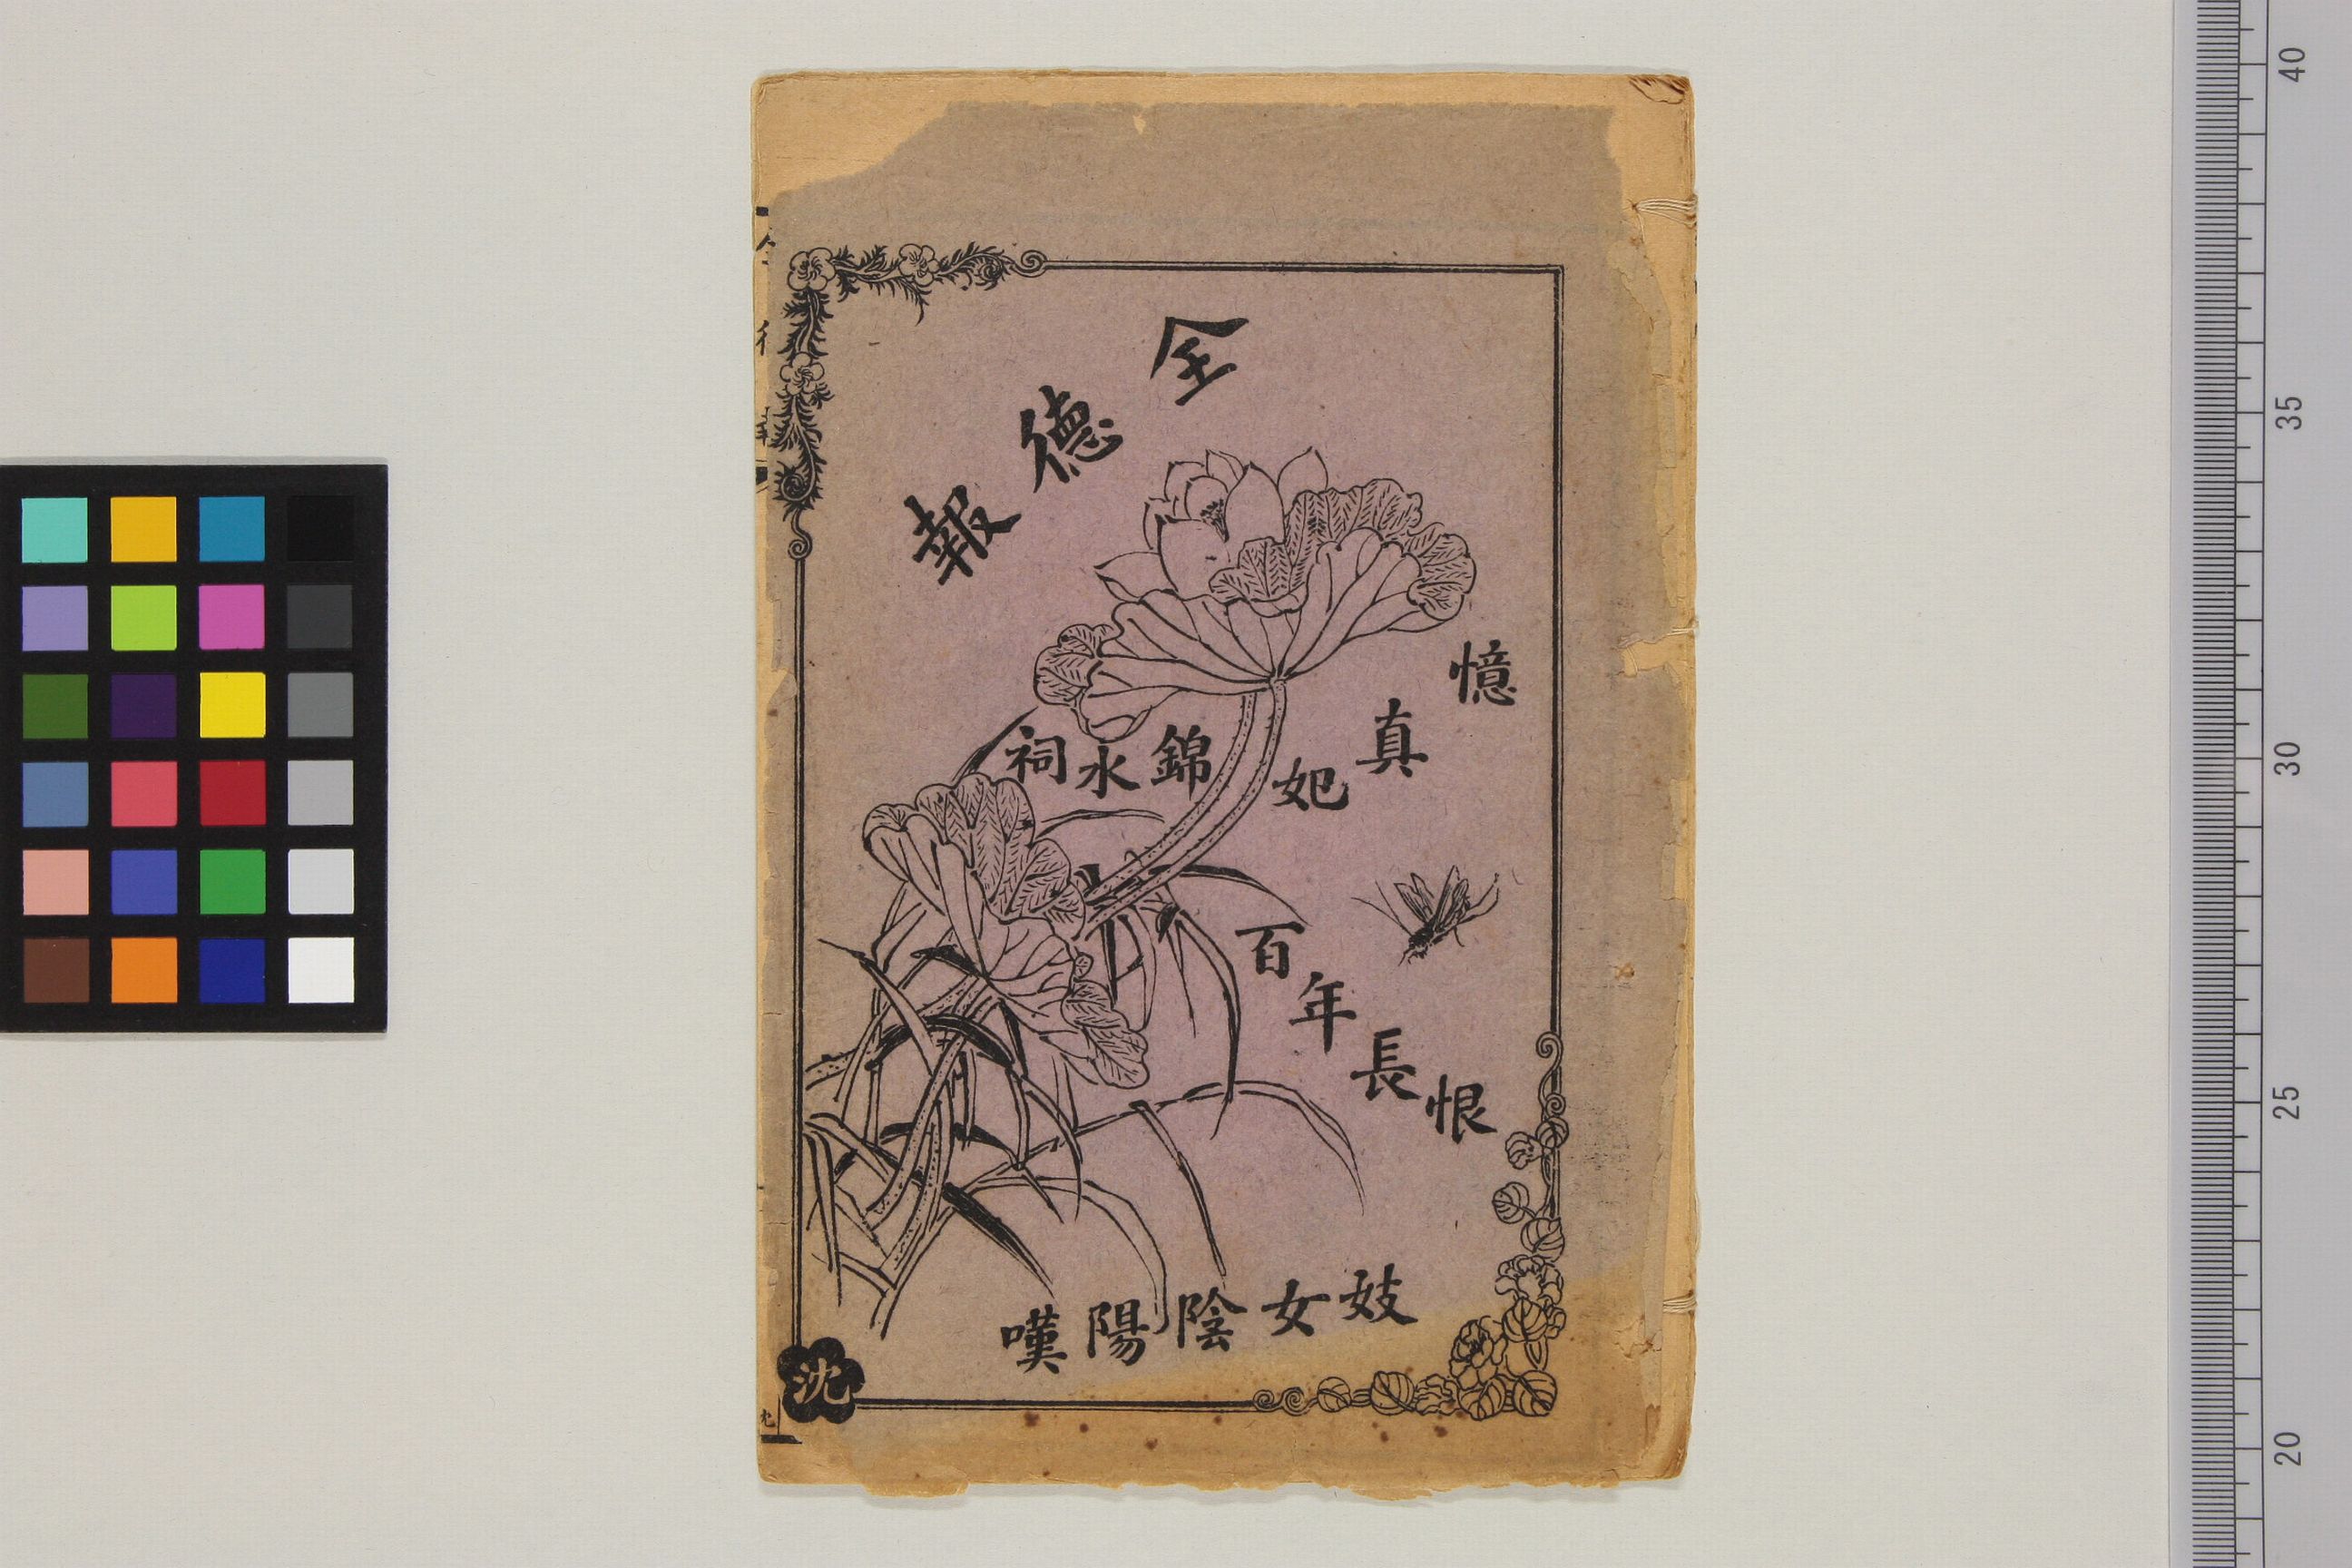 全德報
憶真妃
錦水祠
百年長恨
妓女陰陽嘆
沈
40
35
30
25
20